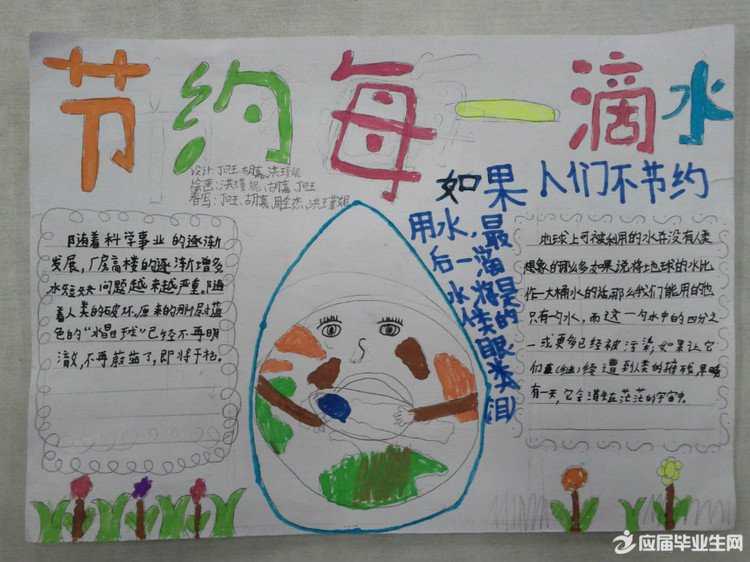 节约每一滴水
如果人们不节约
用水，最
后一滴
水将是
人类的
眼泪
随着科学事业的逐渐
发展，厂房高楼的逐渐增多
水短缺问题越来越严重。随
着人类的破坏。原来的那层蓝
色的“水晶球”已经不再明
澈，不再蔚蓝了，即将干枯。
地球上可被利用的水并没有人类
想象的那么多如果说将地球的水比
作一大桶水的话，那么我们能用的也
只有一勺水，而这一勺水中的四分之
一或更多已经被污染，如果让它
们继续遭到人类的
有一天，它会消失在茫茫的宇宙中。
应届毕业生网